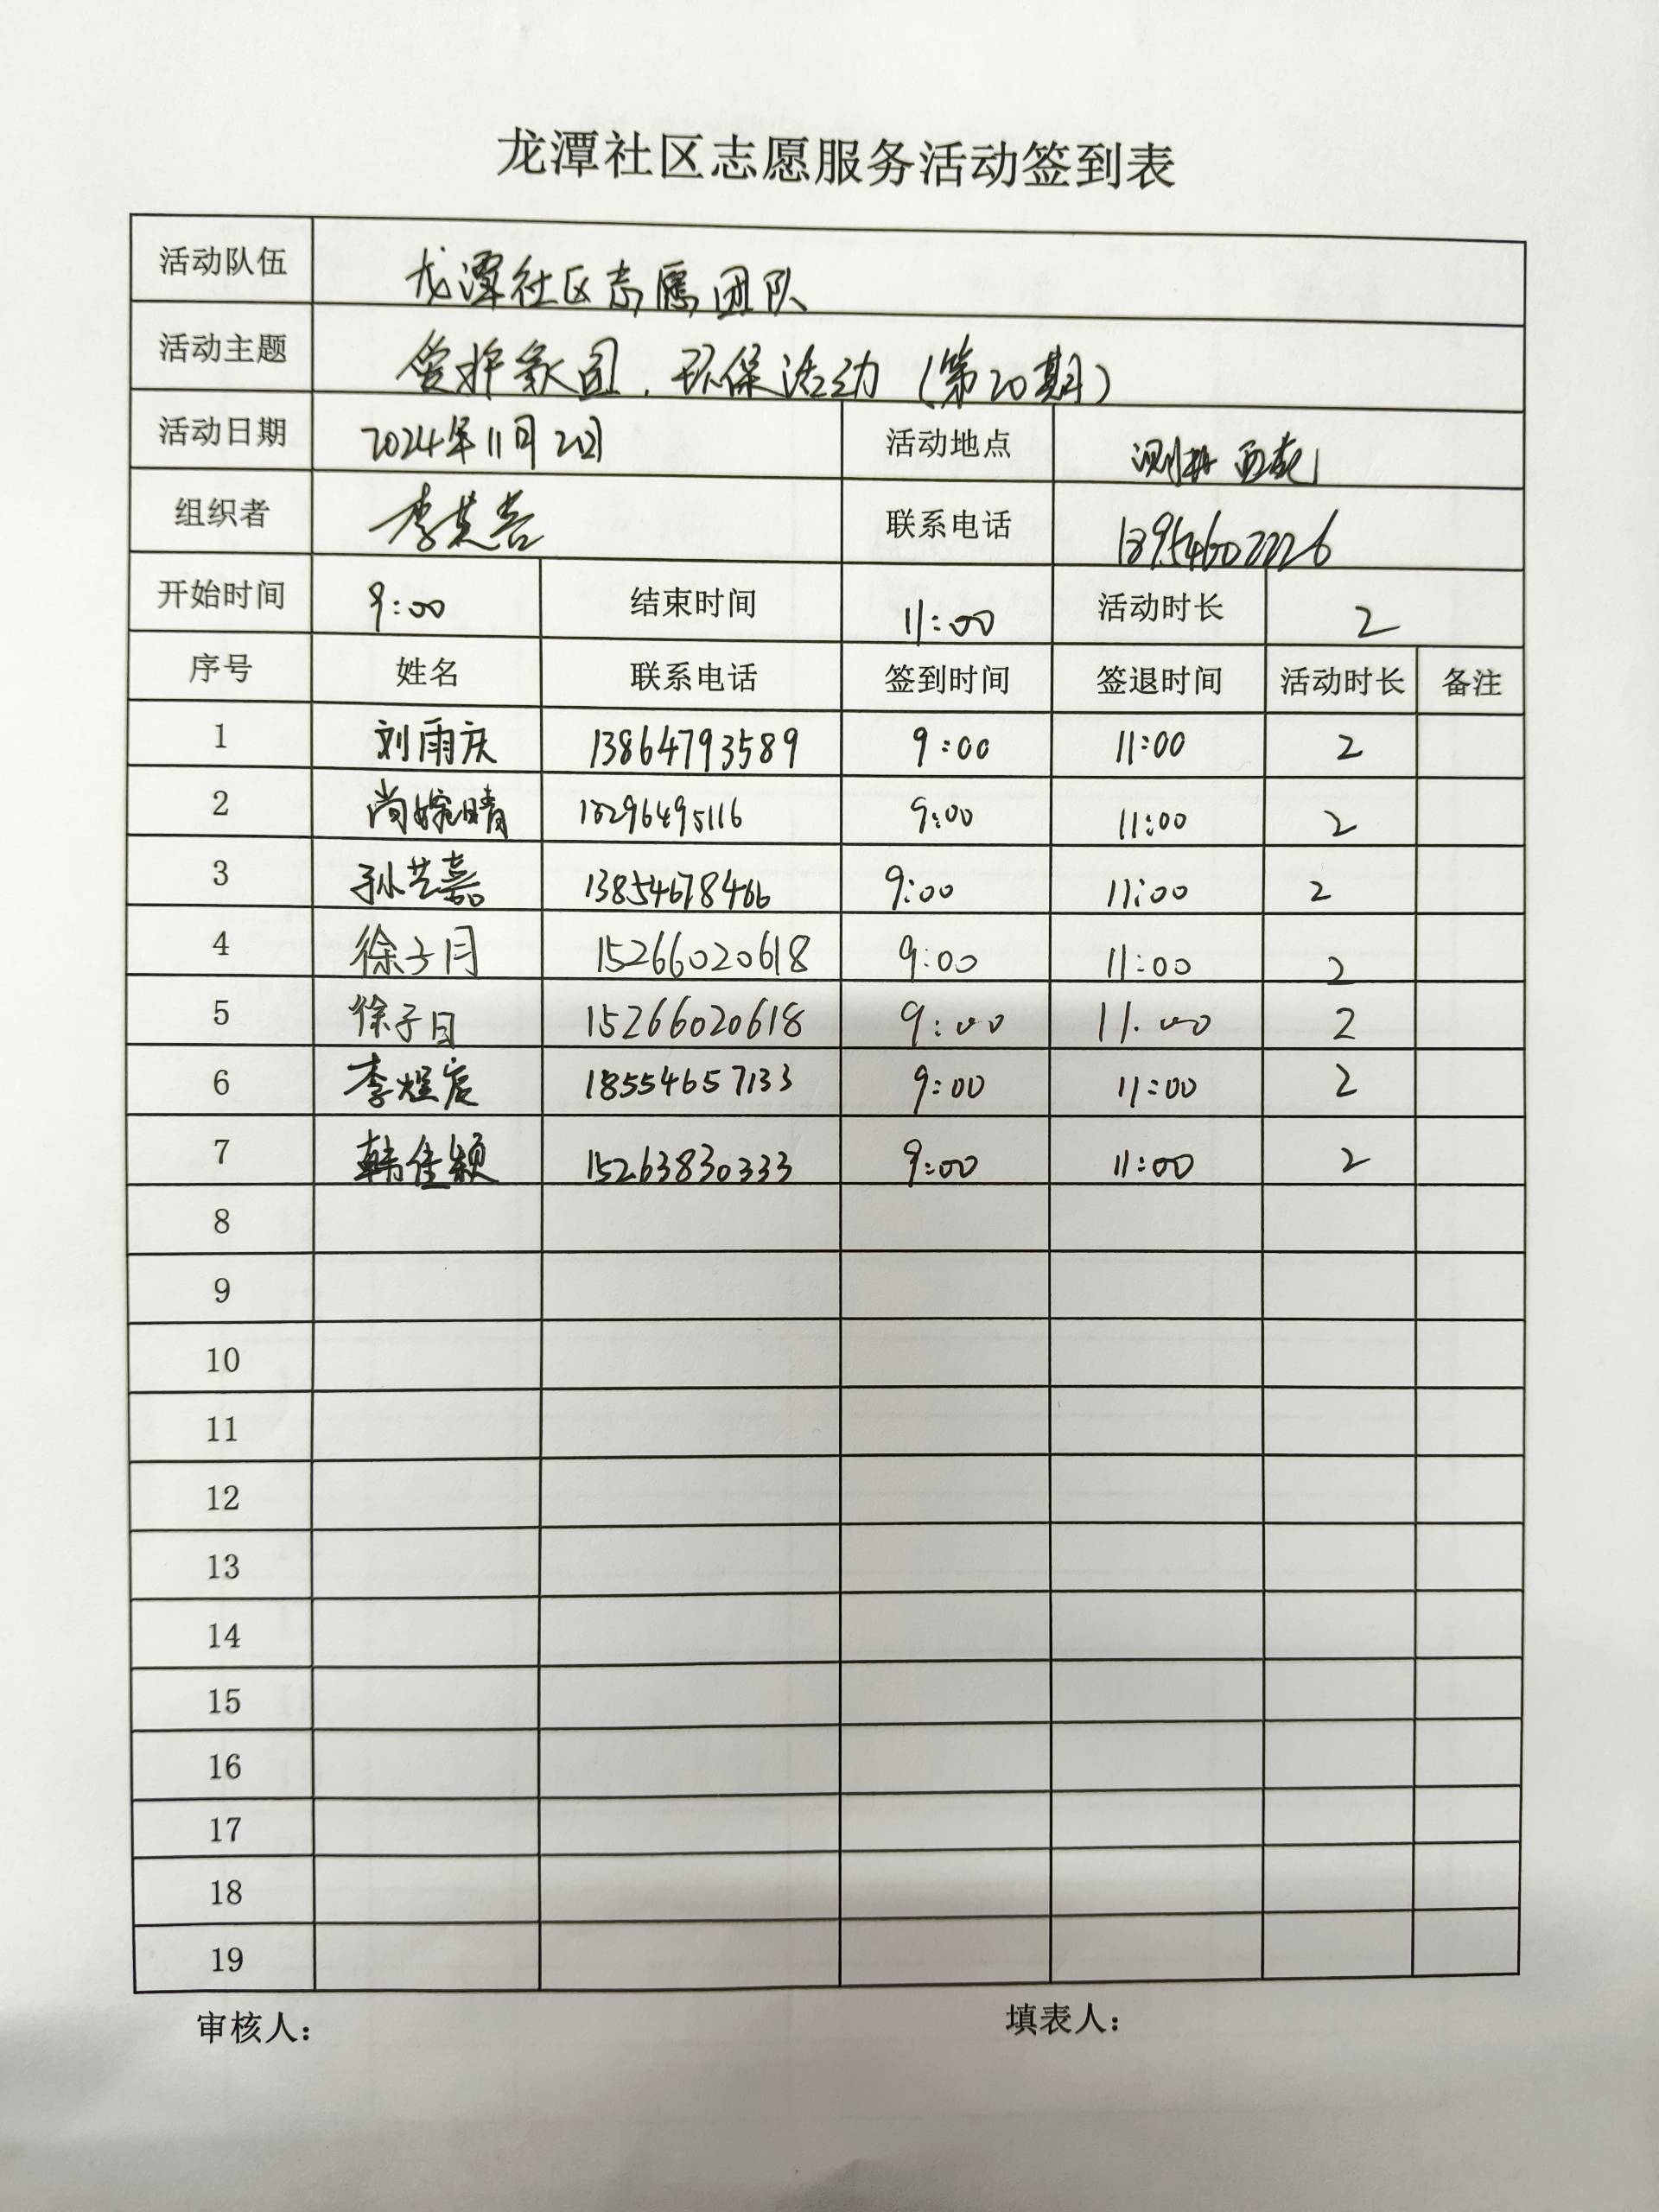 龙潭社区志愿服务活动签到表
活动队伍 龙潭社区志愿团队
活动主题 爱护家园.环保活动（第20期）
活动日期 2024年11月2日 活动地点
组织者 联系电话
开始时间 9:00 结束时间 11:00 活动时长 2
序号 姓名 联系电话 签到时间 签退时间 活动时长 备注
1 刘雨庆 13864793589 9:00 11:00 2
2 尚婉晴 9:00 11:00 2
3 孙艺嘉 13854678466 9:00 11:00 2
4 徐子月 15266020618 9:00 11:00 2
5 徐子日 15266020618 9:00 11.00 2
6 李煜宸 18554657133 9:00 11:00 2
7 韩佳颖 15263830333 9:00 11:00 2
8
9
10
11
12
13
14
15
16
17
18
19
审核人： 填表人：